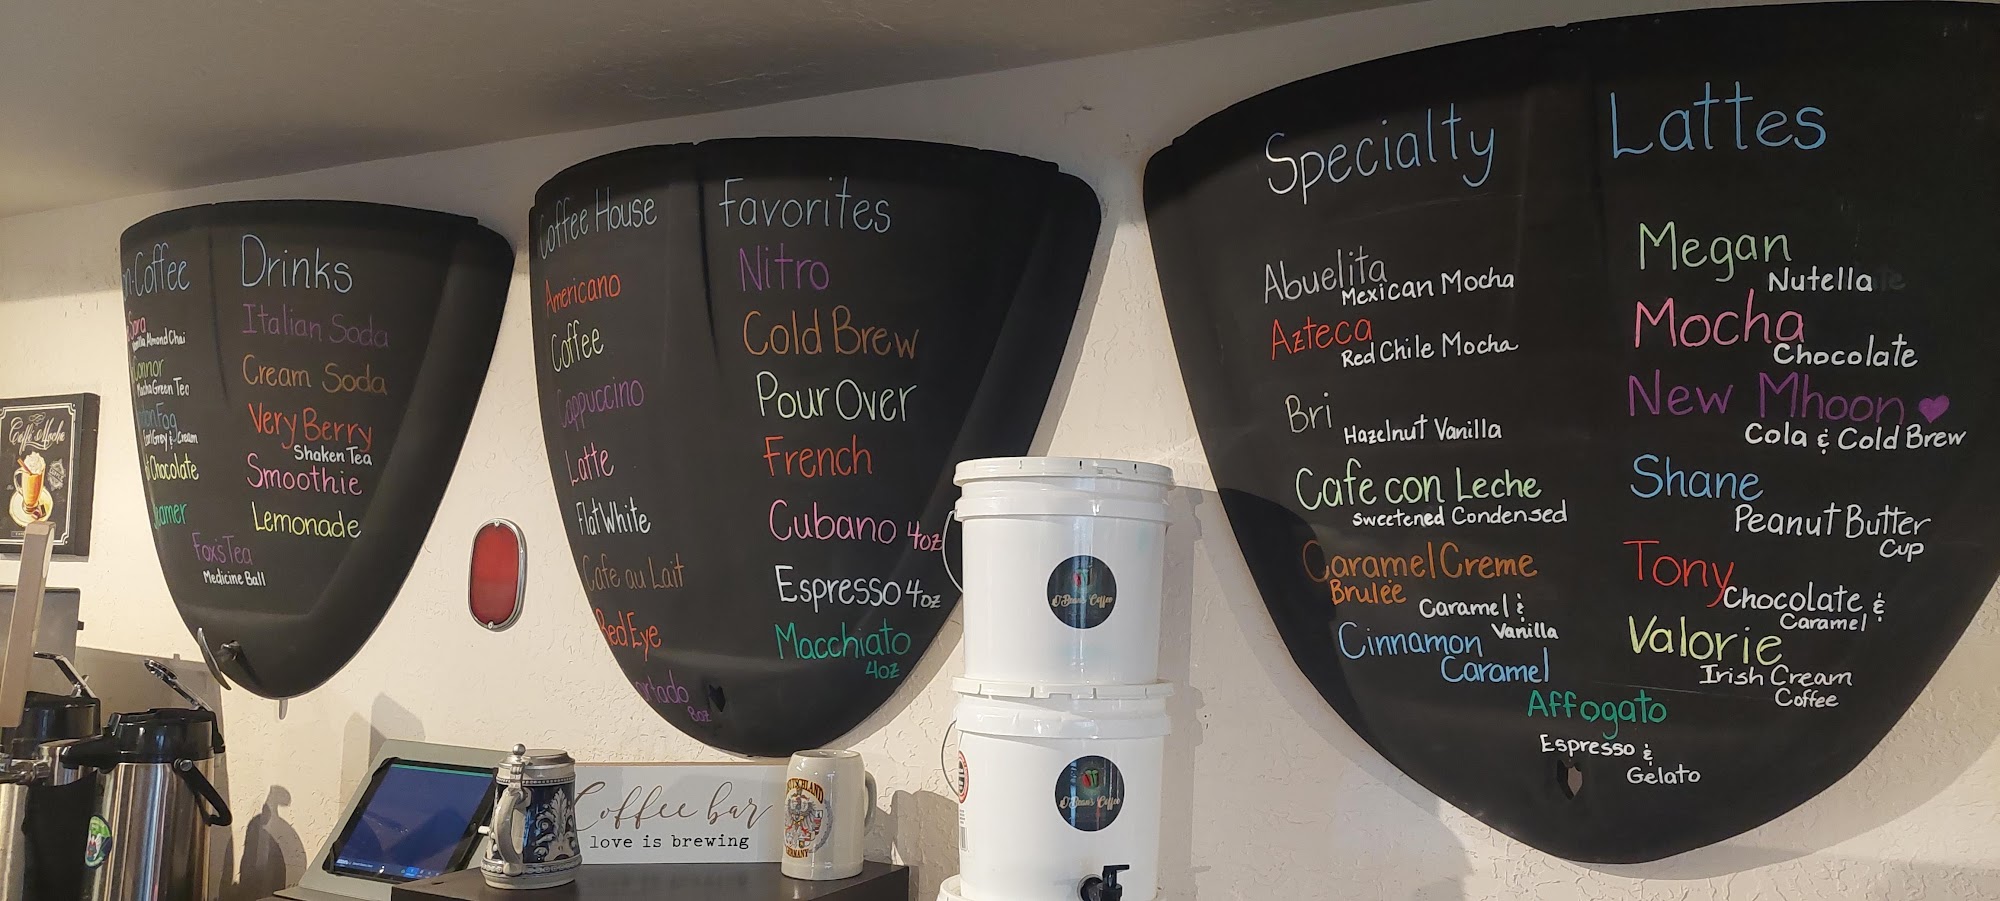 Coffee Drinks
Sara
Vanilla Almond Chai
Connor
Macha Green Tea
Fog
Earl Grey & Cream
Chocolate
Fox's Tea
Medicine Ball
Italian Soda
Cream Soda
Very Berry
Shaken Tea
Smoothie
Lemonade
Coffee House Favorites
Americano
Coffee
Cappuccino
Latte
Flat White
Cafe au Lait
Red Eye
8oz
Nitro
Cold Brew
Pour Over
French
Cubano 4oz
Espresso 4oz
Macchiato
4oz
Specialty Lattes
Abuelita
Mexican Mocha
Azteca
Red Chile Mocha
Bri
Hazelnut Vanilla
Cafe con Leche
Sweetened Condensed
Caramel Creme
Brulée
Caramel &
Vanilla
Cinnamon
Caramel
Megan
Nutella
Mocha
Chocolate
New Mhoon
Cola & Cold Brew
Shane
Peanut Butter
Cup
Tony
Chocolate &
Caramel
Valorie
Irish Cream
Coffee
Affogato
Espresso &
Gelato
Caffe Mocha
Coffee bar
love is brewing
GERMANY
O'Bean's Coffee
O'Bean's Coffee